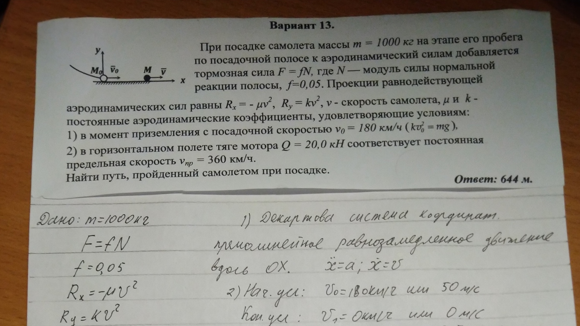 Вариант 13.
y
M₀ v₀ M v x
При посадке самолета массы m = 1000 кг на этапе его пробега
по посадочной полосе к аэродинамическим силам добавляется
тормозная сила F = fN, где N — модуль силы нормальной
реакции полосы, f=0,05. Проекции равнодействующей
аэродинамических сил равны Rₓ = - μv², Rᵧ = kv², v - скорость самолета, μ и k -
постоянные аэродинамические коэффициенты, удовлетворяющие условиям:
1) в момент приземления с посадочной скоростью v₀ = 180 км/ч ( kv₀² = mg ),
2) в горизонтальном полете тяге мотора Q = 20,0 кН соответствует постоянная
предельная скорость vпр = 360 км/ч.
Найти путь, пройденный самолетом при посадке.
Ответ: 644 м.
Дано: m=1000кг 1) Декартова система координат
F=fN прямолинейное равнозамедленное движение
f=0,05 вдоль OX. ẍ=a; ẋ=v
Rₓ=-μv² 2) Нач.усл: v₀=180км/ч или 50 м/с
Rᵧ=kv² Кон усл: v₁=0км/ч или 0 м/с